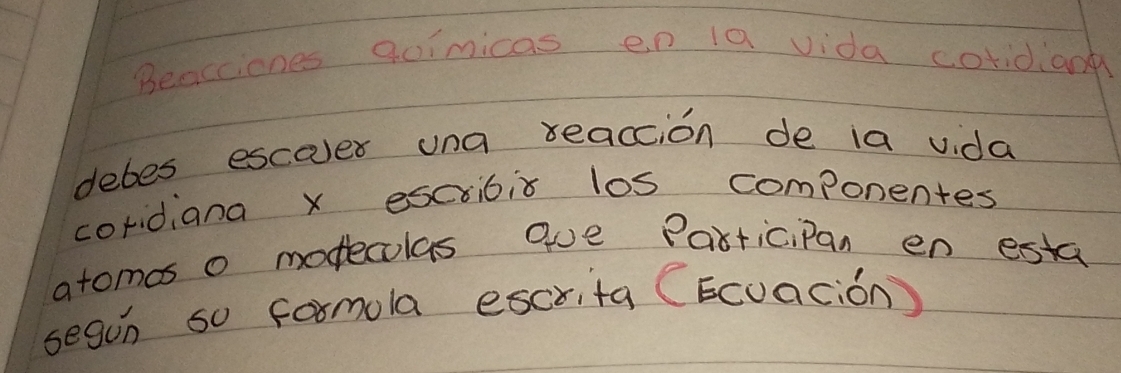 Reacciones químicas en la vida cotidiana
debes escojer una reacción de la vida
cotidiana y escribir los componentes
atomos o moleculas que Participan en esta
según su formula escrita (Ecuación)